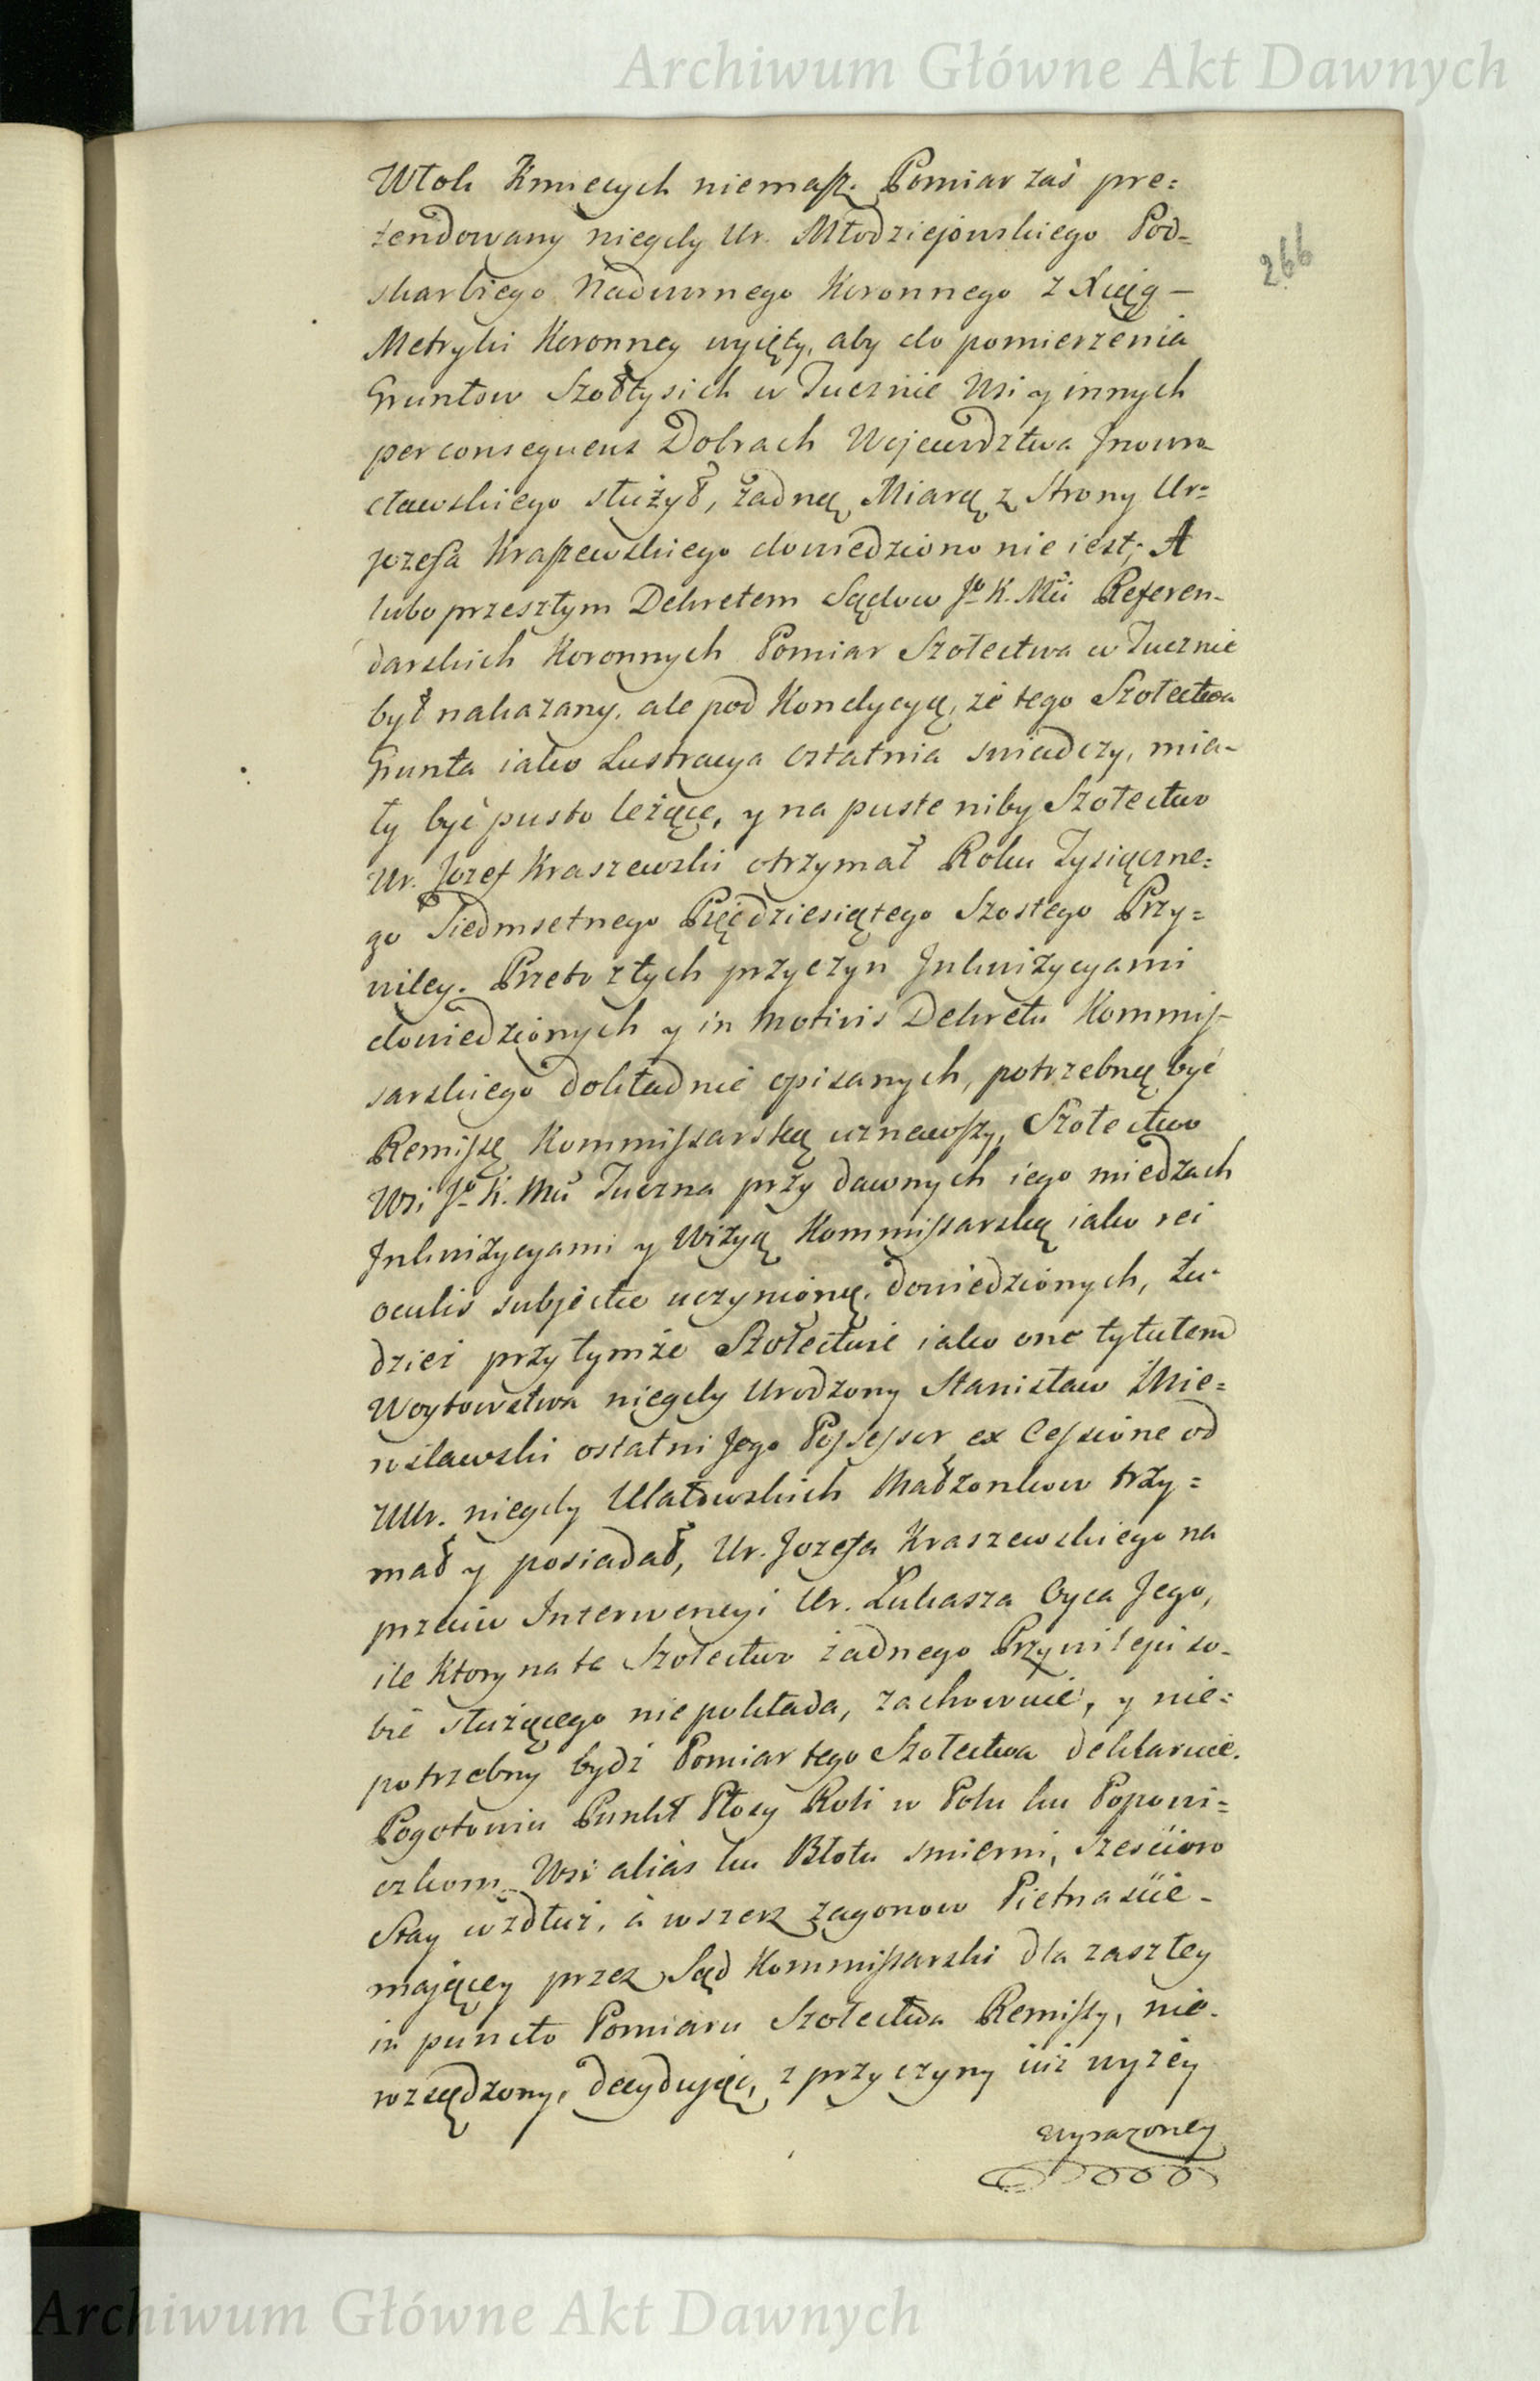 Archiwum Główne Akt Dawnych
266
Włok Kmiecych niemasz. Pomiar zaś pre=
tendowany niegdy Ur. Młodziejowskiego Pod=
skarbiego Nadwornego Koronnego z Xiąg –
Metryki Koronney wyięty, aby do pomierzenia
Gruntow Szołtysich w Tucznie Wsi y innych
per consequens Dobrach Wojewodztwa Inowro
cławskiego służył, żadną Miarą z Strony Ur=
Jozefa Kraszewskiego dowiedziono nie iest; A
lubo przeszłym Dekretem Sądow Jº K. Mći Referen-
darskich Koronnych Pomiar Szołectwa w Tucznie
był nakazany, ale pod Kondycyą, że tego Szołectwa
Grunta iako Lustracya ostatnia swiadczy, mia-
ły być pusto leżące, y na puste niby Szołectwo
Ur. Jozef Kraszewski otrzymał Roku Tysiączne=
go Siedmsetnego Pięćdziesiątego Szostego Przy=
wiley. Przeto z tych przyczyn Inkwizycyami
dowiedzionych y in motivis Dekretu Kommis-
sarskiego dokładnie opisanych, potrzebną być
Remissę Kommissarską uznawszy, Szołectwo
Wsi Jº K. Mći Tuczna przy dawnych iego miedzach
Inkwizycyami y Wizyą Kommissarską iako rei
oculis subjectæ uczynioną dowiedzionych, tu-
dzież przy tymże Szołectwie iako one tytułem
Woytowstwa niegdy Urodzony Stanisław Mie=
rosławski ostatni Jego Possessor ex Cessione od
UUr. niegdy Ulatowskich Małzonkow trzy=
mał y posiadał, Ur. Jozefa Kraszewskiego na
przeciw Interwencyi Ur. Łukasza Oyca Jego,
ile ktory na te Szołectwo żadnego Przywileju so-
bie służącego nie pokłada, zachowuie, y nie=
potrzebny bydź Pomiar tego Szołectwa deklaruie.
Pogotowiu Punkt Płosy Roli w Polu ku Popowi=
czkom Wsi alias ku Błotu smierni, sześcioro
Stay wzdłuż, à wszerz zagonow Pietnaście -
mającey przez Sąd Kommissarski dla zaszłey
in puncto Pomiaru Szołectwa Remissy, nie-
rozsądzony, decydując, z przyczyny iuż wyżey
wyrazoney
Archiwum Główne Akt Dawnych